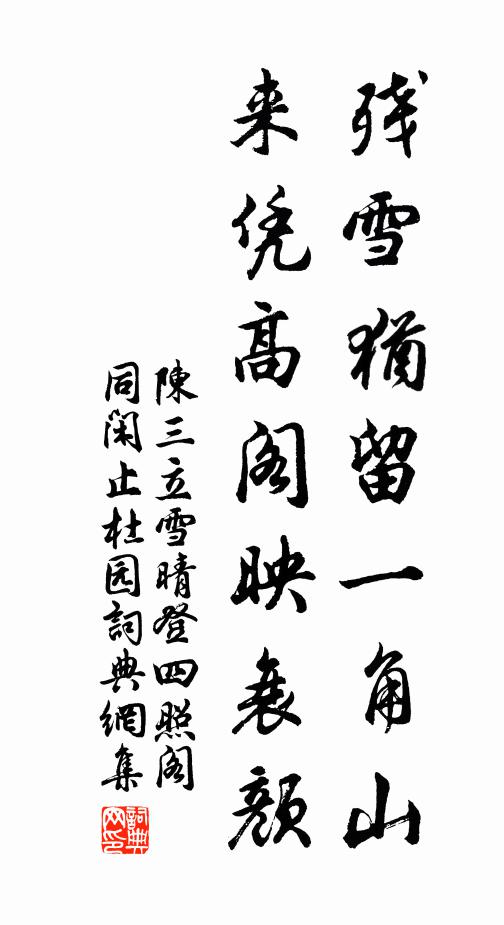 残雪猶留一角山
来凭高阁映衰颜
陳三立雪晴登四照阁
同闲止杜园詞典網集
詞典网印